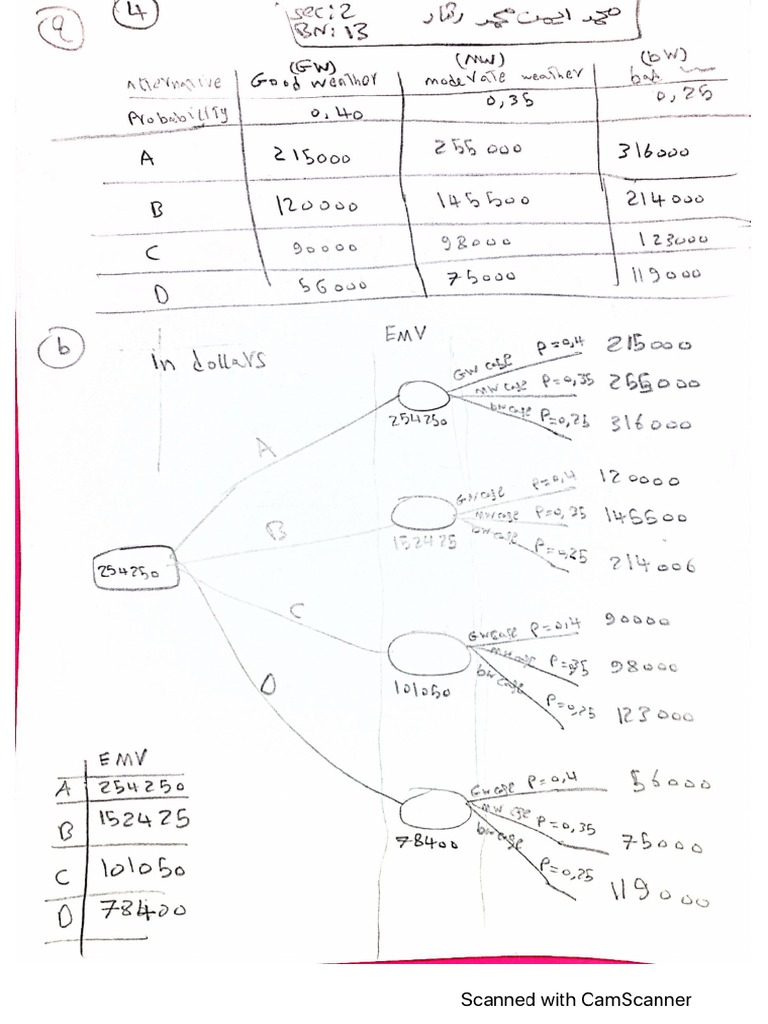 a 4 sec: 2 محمد ايمن محمد رفقار
BN: 13
(GW) (MW) (bW)
Alternative Good weather moderate weather bad
Probability 0,40 0,35 0,25
A 215000 255 000 316000
B 120000 145500 214000
C 90000 98000 123000
D 56000 75000 119000
b
In dollars
EMV
254250
A
254250
GW case P=0,4 215000
MW case P=0,35 255000
bw case P=0,25 316000
B
152425
GW case P=0,4 120000
MW case P=0,35 145500
bw case P=0,25 214000
C
101050
GW case P=0,4 90000
MW case P=0,35 98000
bw case P=0,25 123000
D
78400
GW case P=0,4 56000
MW case P=0,35 75000
bw case P=0,25 119000
EMV
A 254250
B 152425
C 101050
D 78400
Scanned with CamScanner